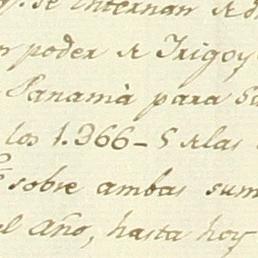 se internan
poder de Trigoy
Panamà para
los 1.366-5 de las
sobre ambas sum
el Año, hasta hoy